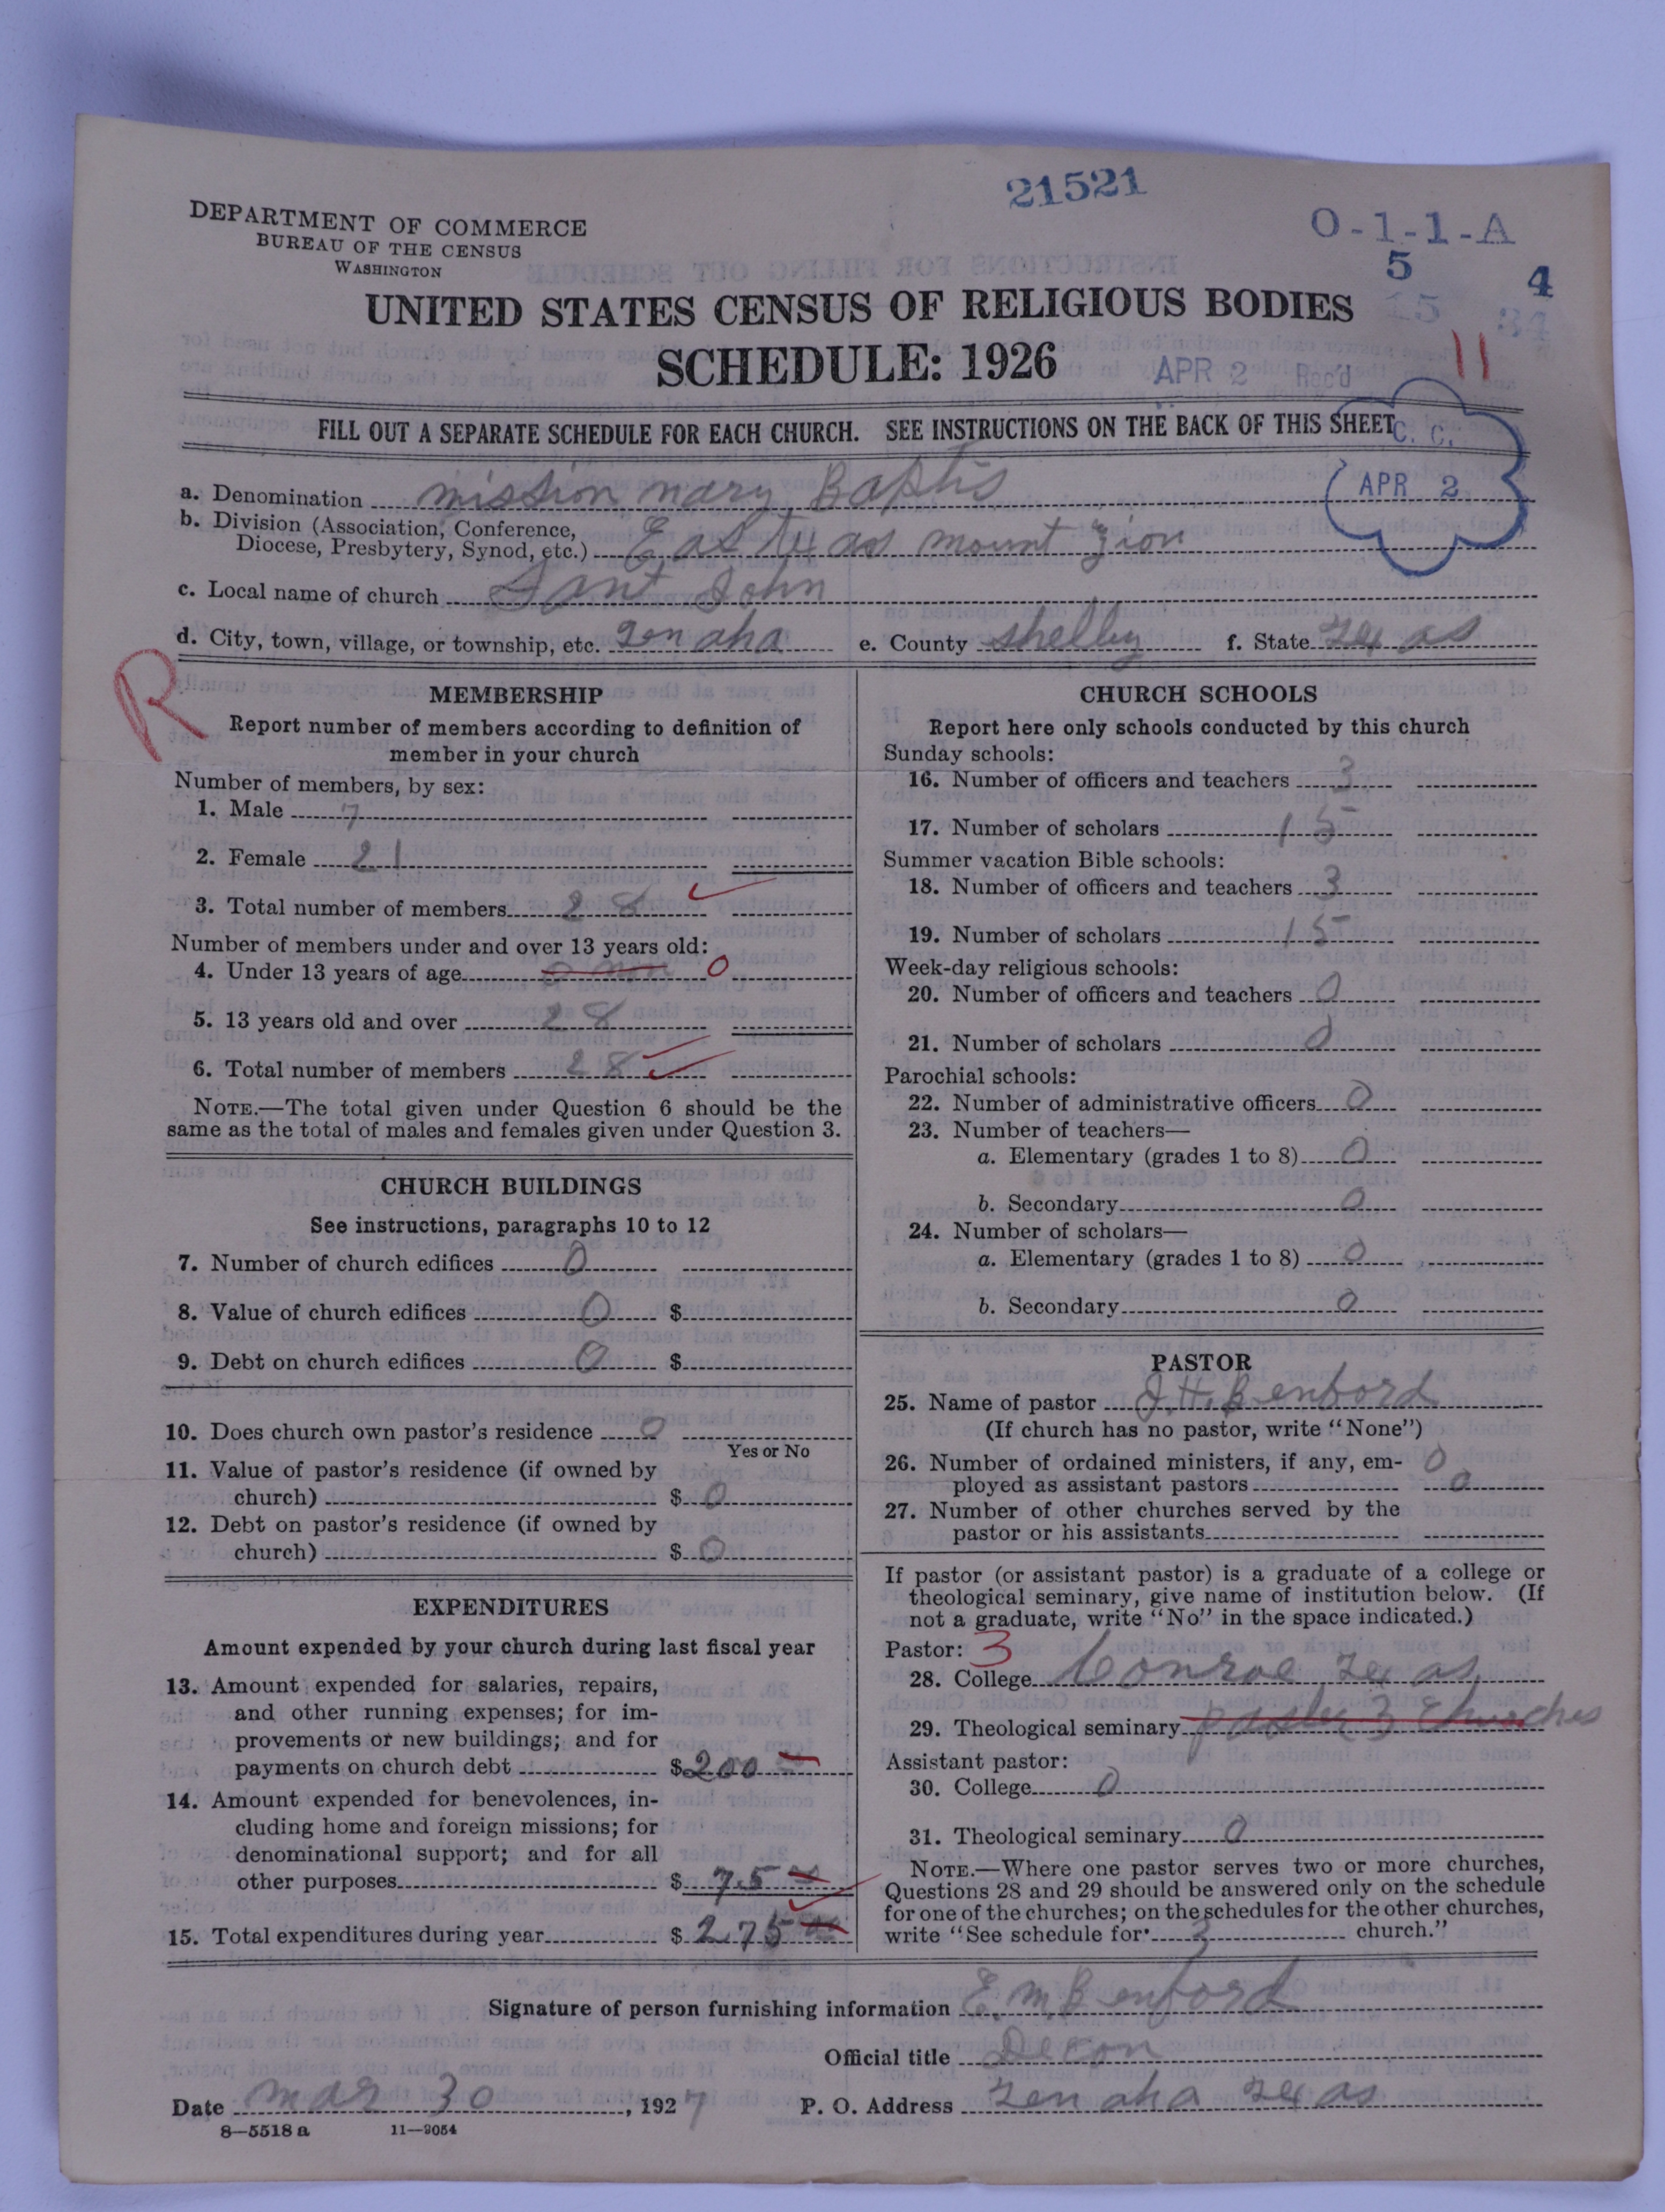 21521
DEPARTMENT OF COMMERCE
BUREAU OF THE CENSUS
WASHINGTON
O-1-1-A
5 4
UNITED STATES CENSUS OF RELIGIOUS BODIES
SCHEDULE: 1926
APR 2 Rec'd
11
FILL OUT A SEPARATE SCHEDULE FOR EACH CHURCH. SEE INSTRUCTIONS ON THE BACK OF THIS SHEET
C. C.
APR 2
a. Denomination mission nary Baptis
b. Division (Association, Conference,
Diocese, Presbytery, Synod, etc.) East Texas mount Zion
c. Local name of church Sant John
d. City, town, village, or township, etc. Tenaha e. County Shelby f. State Texas
R
MEMBERSHIP
Report number of members according to definition of
member in your church
Number of members, by sex:
1. Male 7
2. Female 21
3. Total number of members 28
Number of members under and over 13 years old:
4. Under 13 years of age 0
5. 13 years old and over 28
6. Total number of members 28
NOTE.—The total given under Question 6 should be the
same as the total of males and females given under Question 3.
CHURCH BUILDINGS
See instructions, paragraphs 10 to 12
7. Number of church edifices 0
8. Value of church edifices 0 $
9. Debt on church edifices 0 $
10. Does church own pastor's residence 0
Yes or No
11. Value of pastor's residence (if owned by
church) $ 0
12. Debt on pastor's residence (if owned by
church) $ 0
EXPENDITURES
Amount expended by your church during last fiscal year
13. Amount expended for salaries, repairs,
and other running expenses; for im-
provements or new buildings; and for
payments on church debt $ 200
14. Amount expended for benevolences, in-
cluding home and foreign missions; for
denominational support; and for all
other purposes $ 75
15. Total expenditures during year $ 275
CHURCH SCHOOLS
Report here only schools conducted by this church
Sunday schools:
16. Number of officers and teachers 3
17. Number of scholars 15
Summer vacation Bible schools:
18. Number of officers and teachers 3
19. Number of scholars 15
Week-day religious schools:
20. Number of officers and teachers 0
21. Number of scholars 0
Parochial schools:
22. Number of administrative officers 0
23. Number of teachers—
a. Elementary (grades 1 to 8) 0
b. Secondary 0
24. Number of scholars—
a. Elementary (grades 1 to 8) 0
b. Secondary 0
PASTOR
25. Name of pastor J. H. Benford
(If church has no pastor, write "None")
26. Number of ordained ministers, if any, em- 0
ployed as assistant pastors 0
27. Number of other churches served by the
pastor or his assistants
If pastor (or assistant pastor) is a graduate of a college or
theological seminary, give name of institution below. (If
not a graduate, write "No" in the space indicated.)
Pastor: 3
28. College Conroe Texas
29. Theological seminary paster 3 Churches
Assistant pastor:
30. College 0
31. Theological seminary 0
NOTE.—Where one pastor serves two or more churches,
Questions 28 and 29 should be answered only on the schedule
for one of the churches; on the schedules for the other churches,
write "See schedule for 3 church."
Signature of person furnishing information E. M. Benford
Official title Decon
Date mar 30, 1927 P. O. Address Tenaha Texas
8—5518 a 11—9054